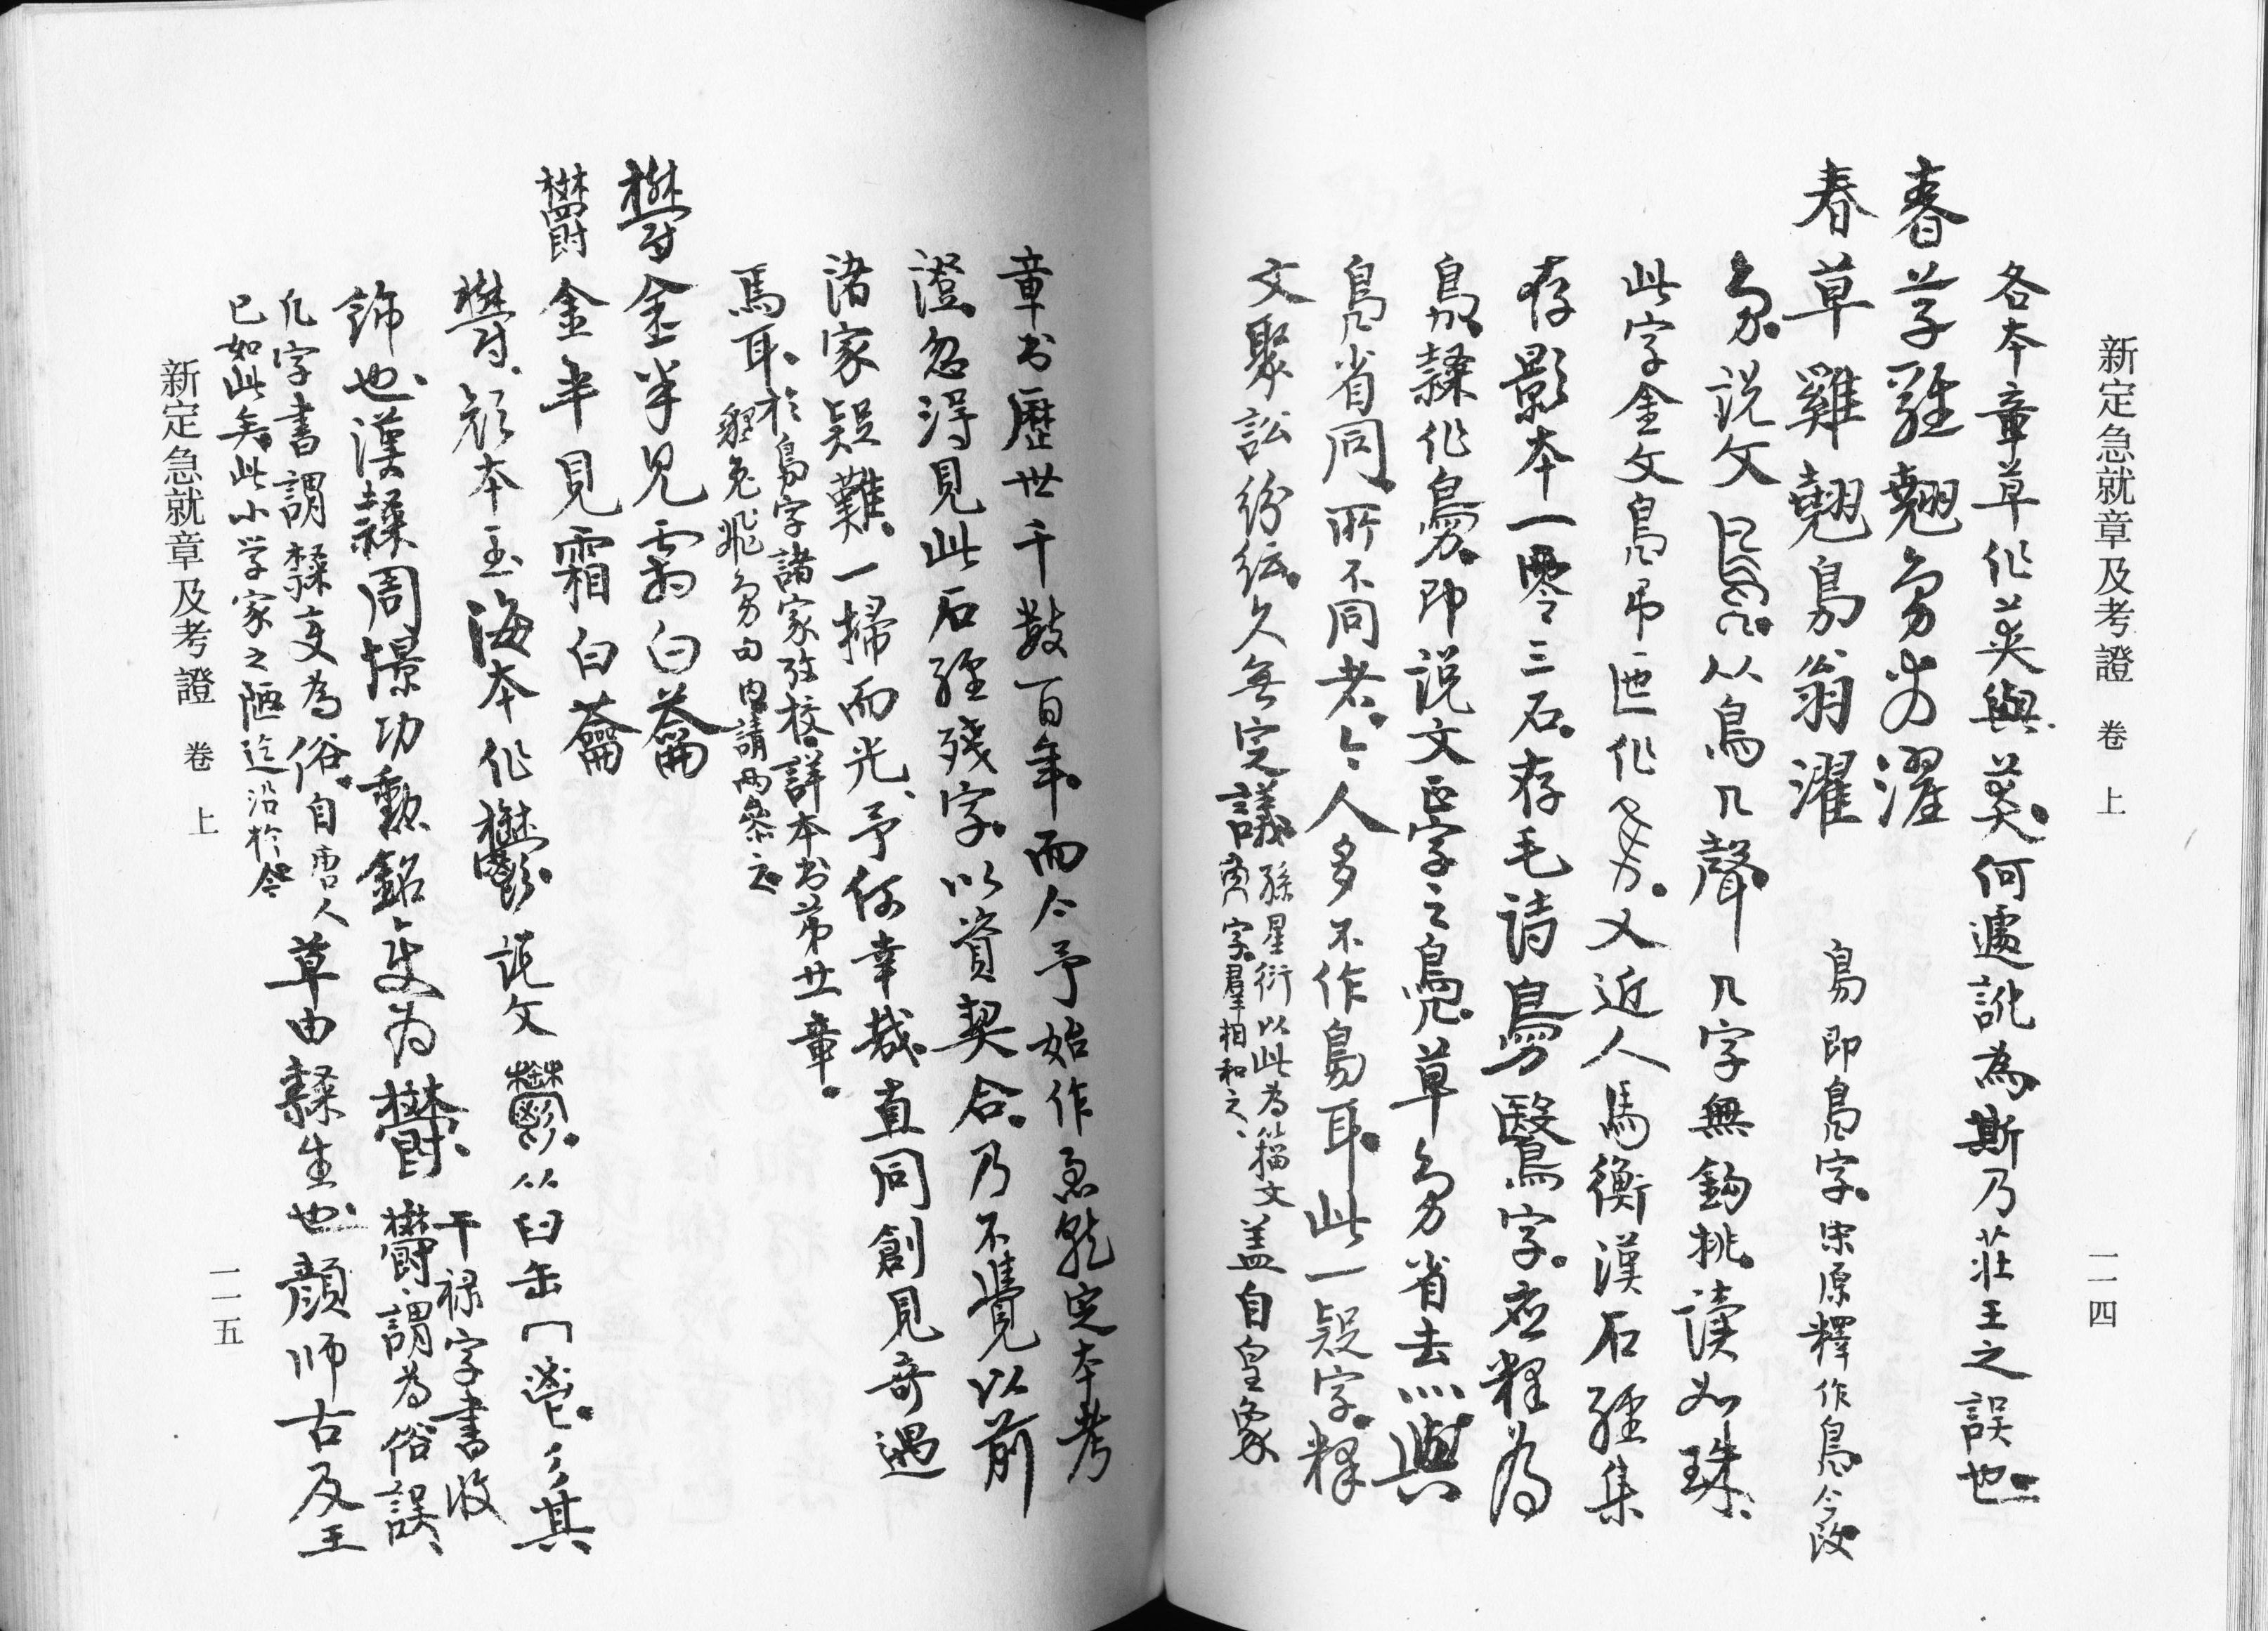 新定急就章及考證 卷上
一一四
各本章草作英與莫何遽訛為斯乃莊王之誤也
春草雞翹鳧翁濯
春草雞翹鳧翁濯 鳧即鳧字宋原釋作鳧今改
鳧說文鳧从鳥几聲几字無鈎挑讀如珠
此字金文鳧弔匜作又近人馬衡漢石經集
存影本一零三石存毛詩鳧鷖字應釋為
鳧隸作鳧即說文正字之鳧草鳧省去灬與
鳧省同所不同者今人多不作鳧耳此一疑字釋
文聚訟紛紜久無定議孫星衍以此為籀文
字羣相和之蓋自皇象
章书歷世千數百年而今予始作急就定本考
證忽得見此石經殘字以資契合乃不覺以前
諸家疑難一掃而光予何幸哉直同創見奇遇
焉耳於鳧字諸家攷校詳本书第廿章
貍兔飛鳧句內請兩參之
鬱金半見霜白䕘
鬱金半見霜白䕘
鬱顏本玉海本作鬱說文鬱从臼缶冖鬯彡其
飾也漢隸周憬功勳銘變為鬱干祿字書收
鬱謂為俗誤
凡字書謂隸变為俗自唐人
已如此矣此小学家之陋迄沿於今
草由隸生也顏师古及王
新定急就章及考證 卷上
一一五